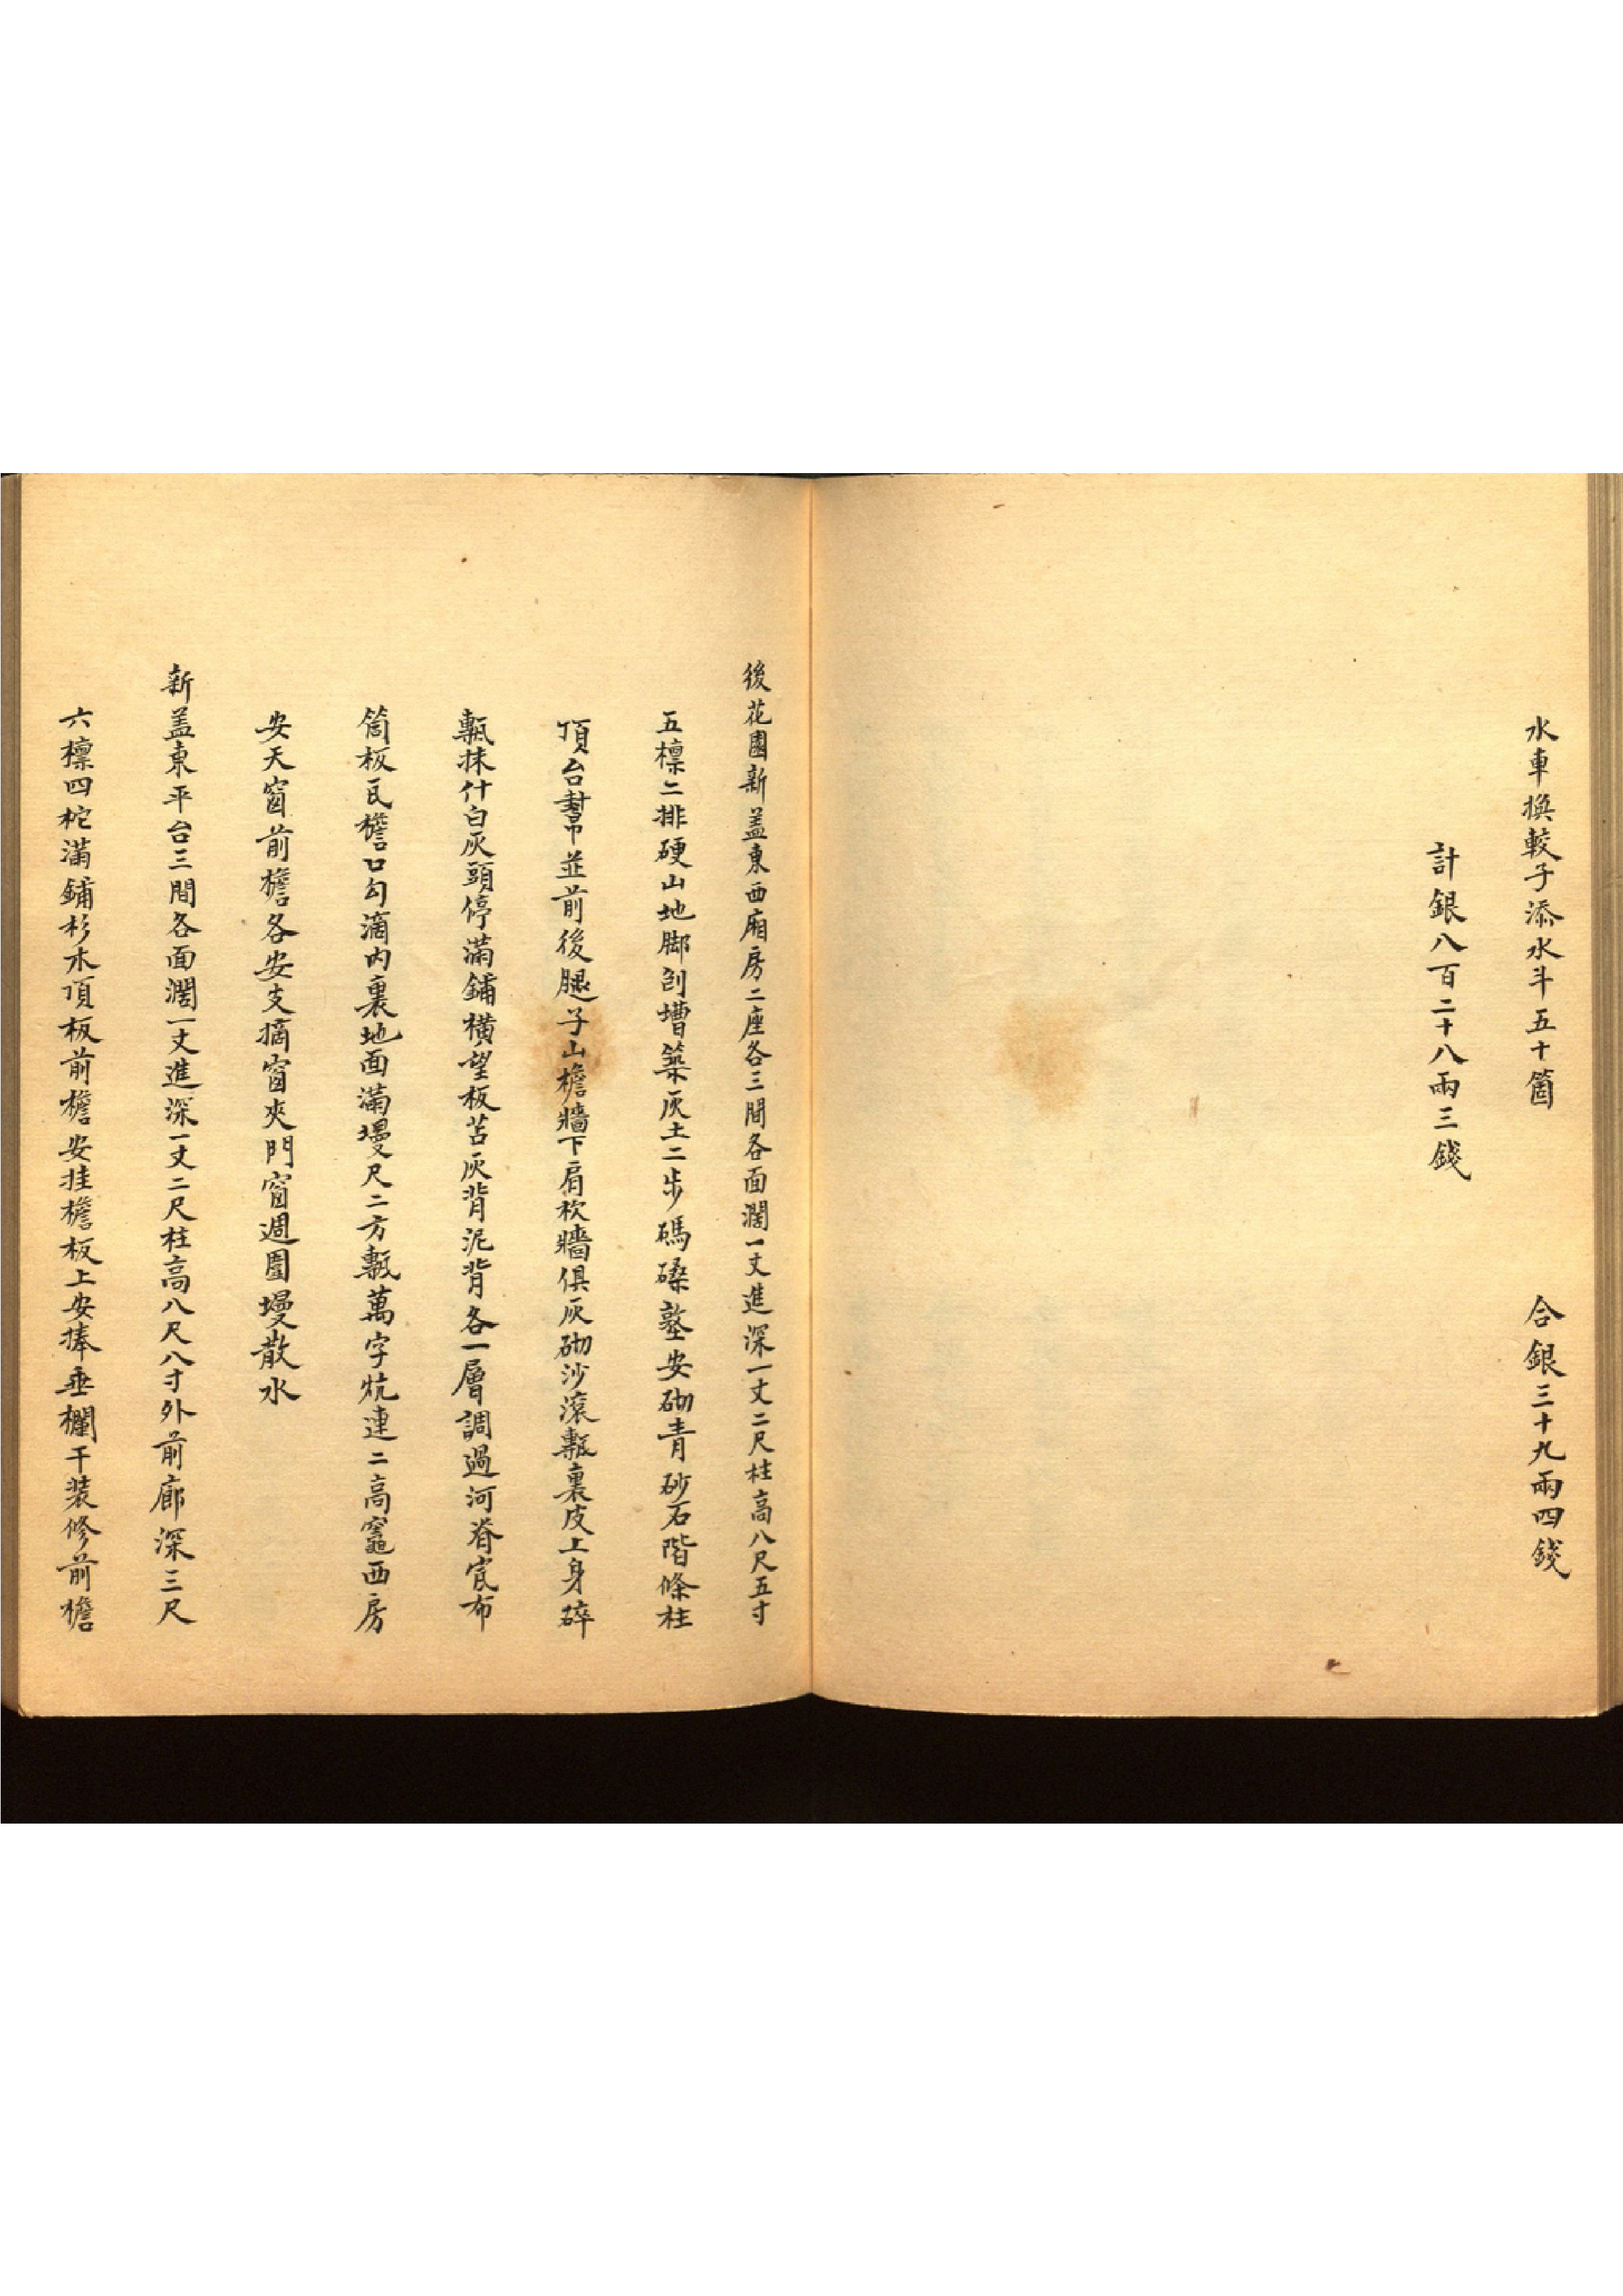 水車換較子添水斗五十箇　合銀三十九兩四錢
計銀八百二十八兩三錢
後花園新盖東西廂房二座各三間各面濶一丈進深一丈二尺柱高八尺五寸
五檁二排硬山地脚刨壋築灰土二步碼磉墪安砌青砂石階條柱
頂台幇並前後腿子山檐牆下肩杴牆俱灰砌沙滾甎裏皮上身碎
甎抹什白灰頭停滿鋪橫望板苫灰背泥背各一層調過河脊宼布
筒板瓦檐口勾滴內裏地面滿墁尺二方甎萬字炕連二高竈西房
安天窗前檐各安支摘窗夾門窗週圍墁散水
新盖東平台三間各面濶一丈進深一丈二尺柱高八尺八寸外前廊深三尺
六檁四柁滿鋪杉木頂板前檐安挂檐板上安捧垂欄干装修前檐